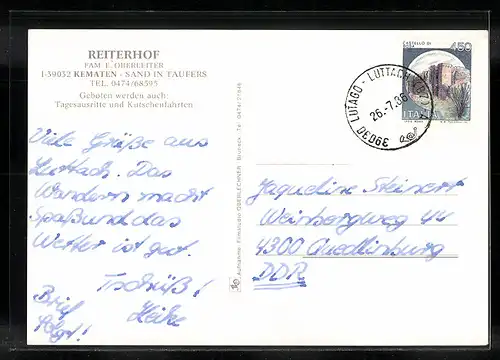 REITERHOF
FAM E. OBERLEITER
I-39032 KEMATEN - SAND IN TAUFERS
TEL. 0474/68595
Geboten werden auch:
Tagesausritte und Kutschenfahrten
Viele Grüße aus
Luttach. Das
Wandern macht
Spaß und das
Wetter ist gut.
Tschüß!
Heike
Brief
folgt!
Aufnahme: Filmstudio OBERLECHNER - Bruneck - Tel. 0474/21846
CASTELLO DI
450
ITALIA
39030 LUTAGO - LUTTACH
26.-7.86
Jaqueline Steinert
Weinbergweg 44
4300 Quedlinburg
DDR